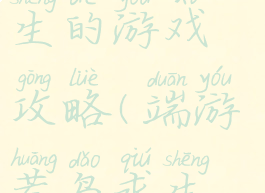 shēng de yóu xì
生的游戏
gōng lüè duān yóu
攻略(端游
huāng dǎo qiú shēng
荒岛求生